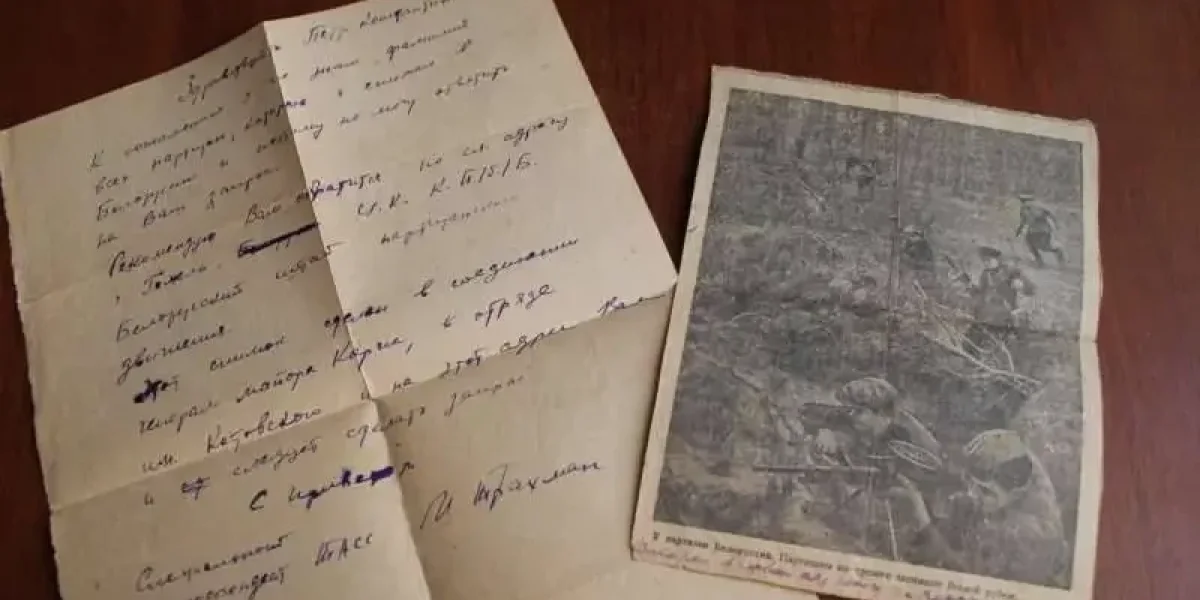 Здравствуйте Петр Константин
К сожалению я не знаю фамилий
всех партизан, которых я снимал в
Белоруссии и поэтому не могу ответить
на Ваш запрос.
Рекомендую Вам обратится по сл. адресу
г. Гомель. Ц.К. К.П./б/Б.
Белорусский штаб партизанского
движения.
Этот снимок сделан в соединении
генерал майора Коржа, в отряде
им. Котовского и на этот адрес Вам
и следует сделать запрос
С приветом
И Трахман
Специальный
корреспондент ТАСС
У партизан Белоруссии. Партизаны по тревоге занимают боевой рубеж.